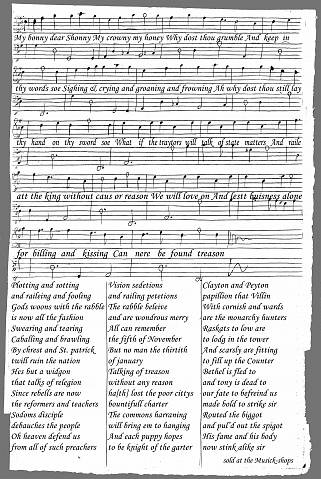 My bonny dear Shonny My crowny my honey Why dost thou grumble And keep in
thy words soe Sighing & crying and groaning and frowning Ah why dost thou still lay
thy hand on thy sword soe What if the traytors will talk of state matters And raile
att the king without caus or reason We will love on And lestt buisness alone
for billing and kissing Can nere be found treason
Plotting and sotting
and raileing and fooling
Gods woons with the rabble
is now all the fashion
Swearing and tearing
Caballing and brawling
By chrest and St. patrick
twill ruin the nation
Hes but a widgon
that talks of relegion
Since rebells are now
the reformers and teachers
Sodoms disciple
debauches the people
Oh heaven defend us
from all of such preachers
Vision sedetions
and railing petetions
The rabble beleive
and are wondrous merry
All can remember
the fifth of November
But no man the thirtith
of january
Talking of treason
without any reason
ha[th] lost the poor cittys
bountifull charter
The commons harraning
will bring em to hanging
And each puppy hopes
to be knight of the garter
Clayton and Peyton
papillion that Villin
With cornish and wards
are the monarchy hunters
Raskats to low are
to lodg in the tower
And scarsly are fitting
to fill up the Counter
Bethel is fled to
and tony is dead to
our fate to befreind us
made bold to strike sir
Routed the biggot
and pul'd out the spigot
His fame and his body
now stink alike sir
sold at the Musick-shops